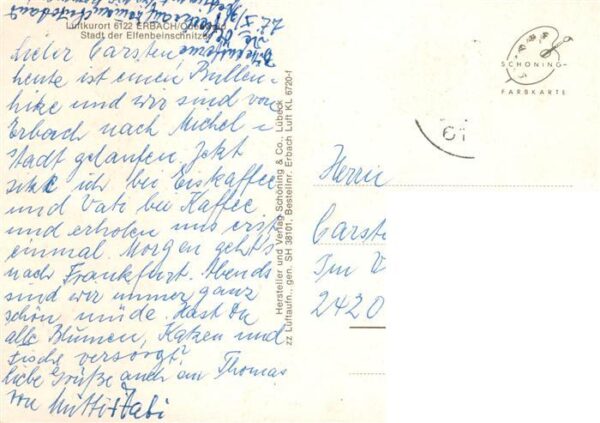 Luftkurort 6122 ERBACH/Odenwald
Stadt der Elfenbeinschnitzer
Lieber Carsten,
heute ist einen Bullen-
hike und wir sind von
Erbach nach Michel-
stadt gelaufen. Jetzt
sitze ich bei Eiskaffee
und Vati bei Kaffee
und erholen uns erst
einmal. Morgen geht's
nach Frankfurt. Abends
sind wir immer ganz
schön müde. Hast Du
alle Blumen, Katzen und
Fische versorgt?
liebe Grüße auch an Thomas
von Mutti +
Hersteller und Verlag Schöning & Co., Lübeck
zz Luftaufn., gen. SH 38101, Bestellnr. Erbach Luft KL 6720-f
SCHÖNING-
FARBKARTE
61
Herrn
Carste
Im V
2420